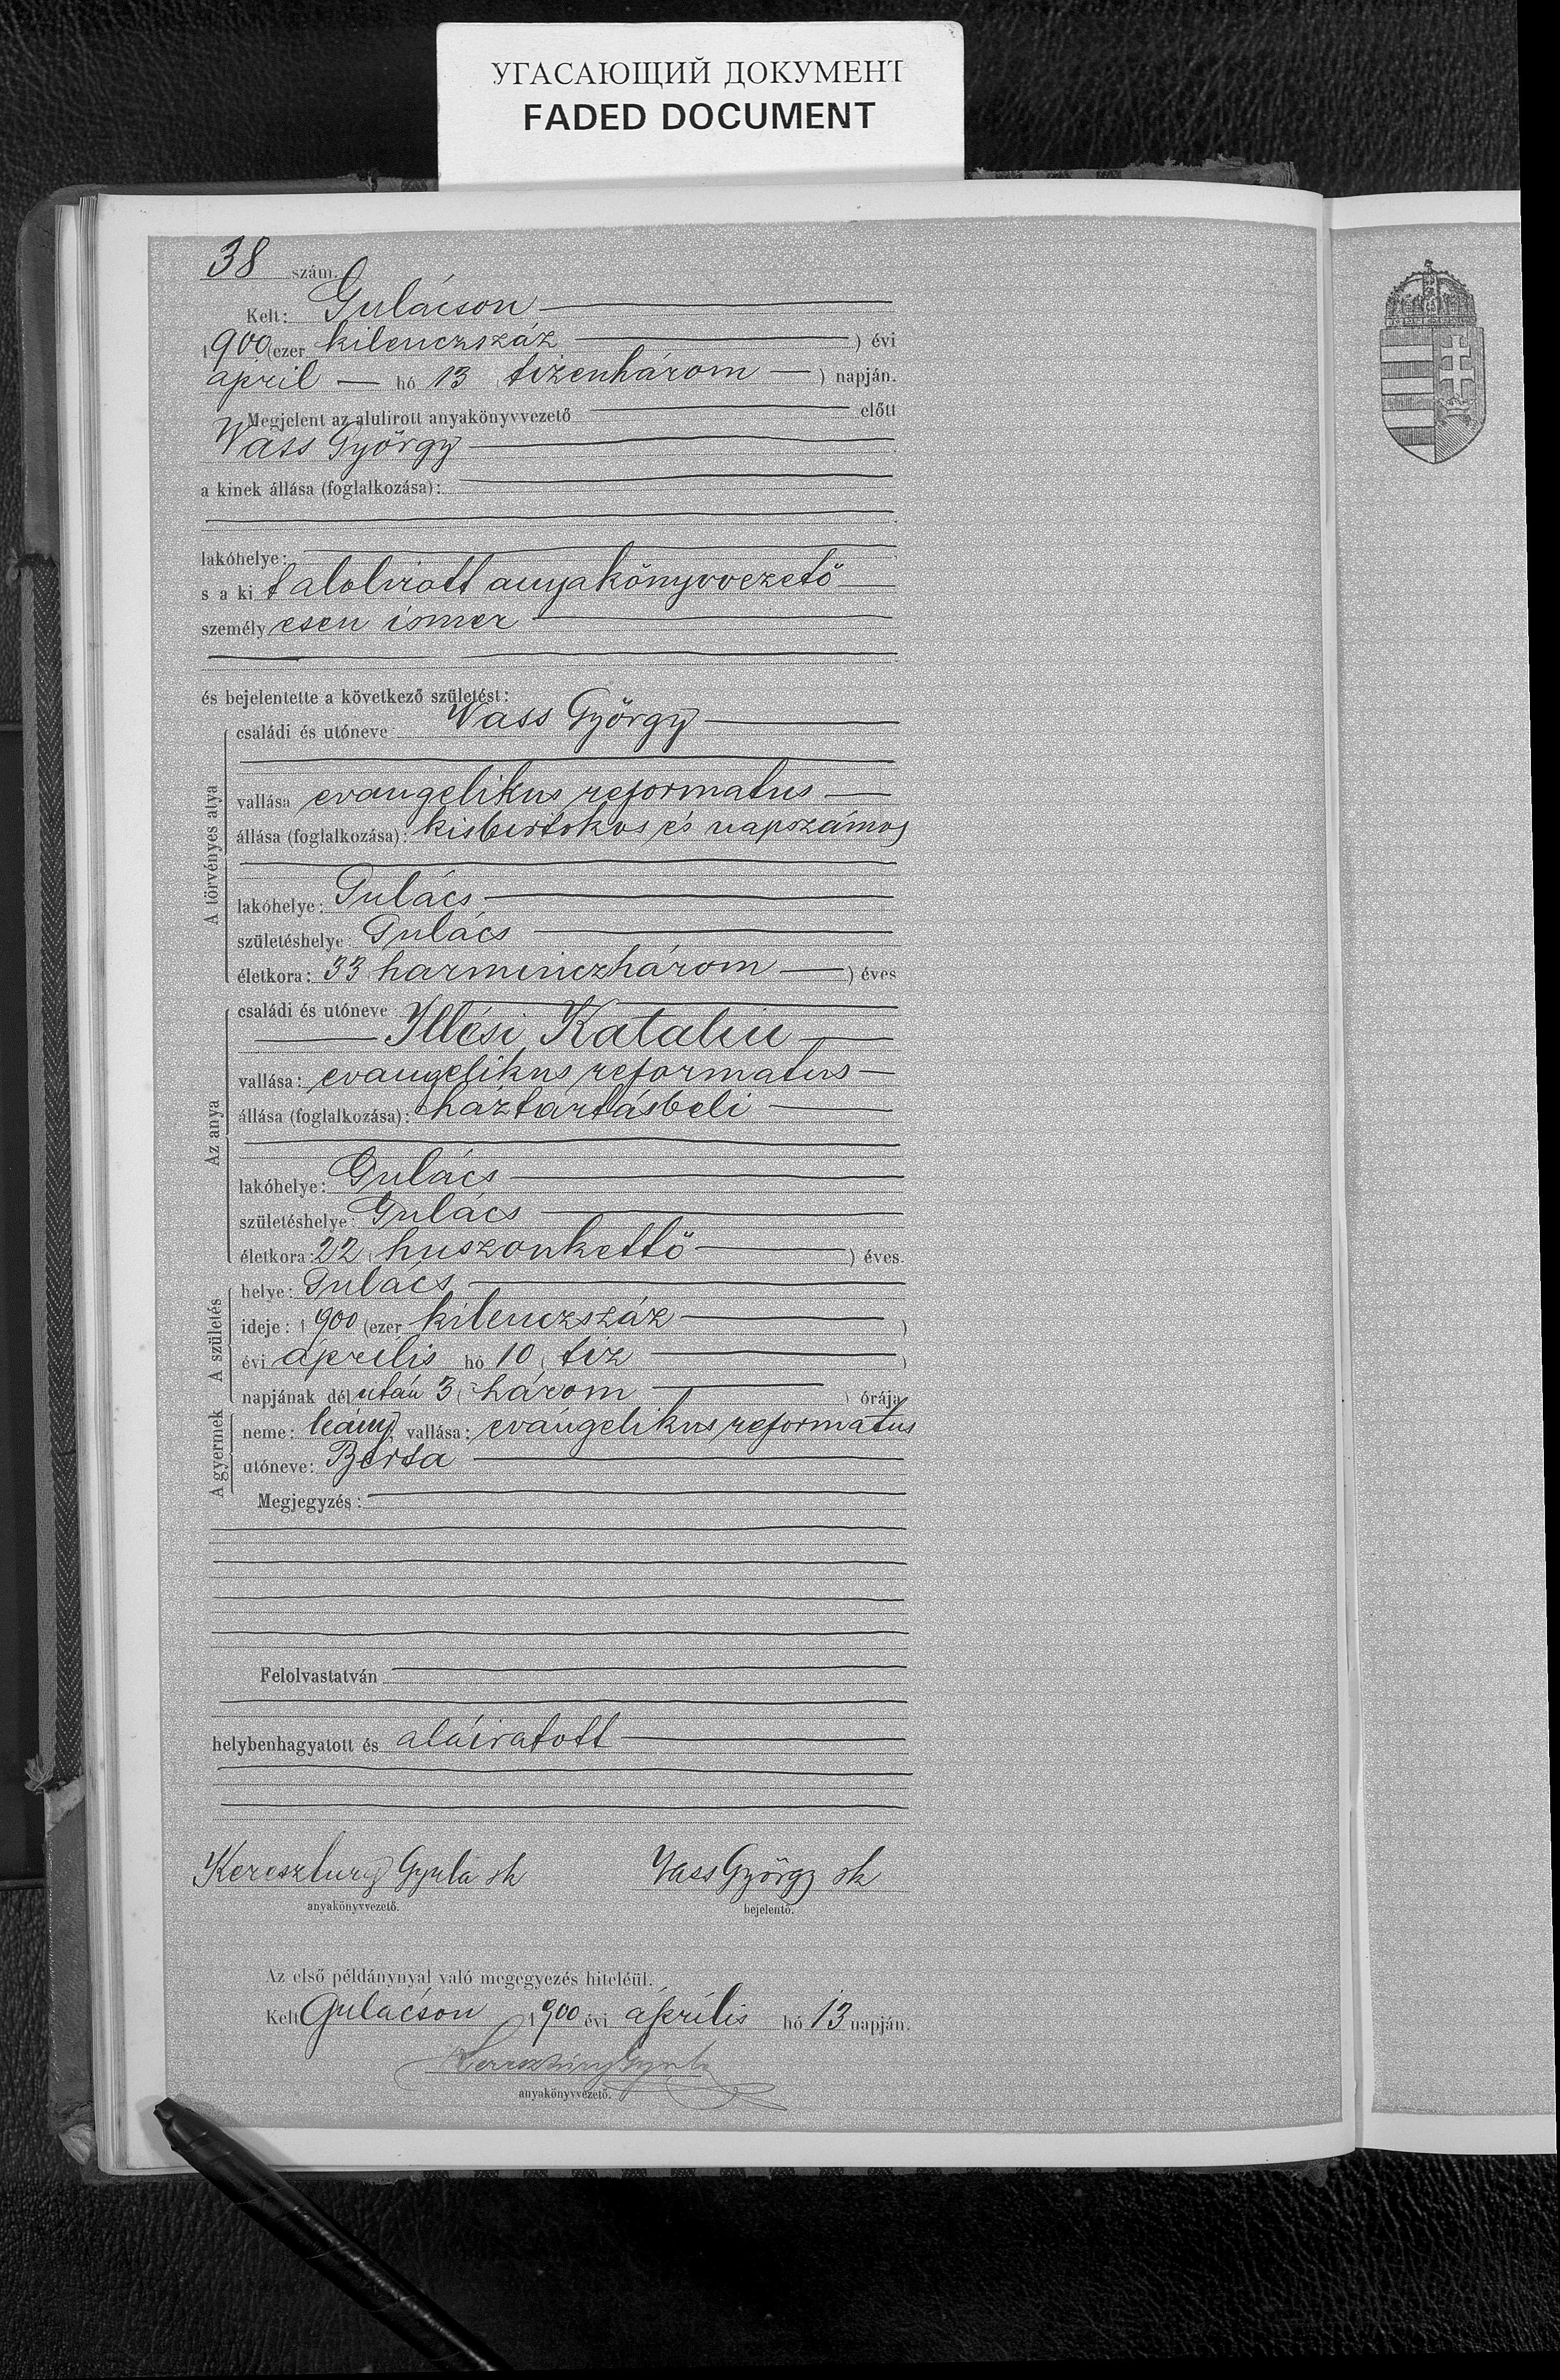 УГАСАЮЩИЙ ДОКУМЕНТ
FADED DOCUMENT
38 szám.
Kelt: Gulácson
1900 (ezer kilenczszáz ) évi
april hó 13 ( tizenhárom ) napján.
Megjelent az alulirott anyakönyvvezető előtt
Vass György
a kinek állása (foglalkozása):
lakóhelye:
s a ki t alolirott anyakönyvvezető
személy esen ismer
és bejelentette a következő születést:
A törvényes atya
családi és utóneve Vass György
vallása evangelikus reformatus
állása (foglalkozása): kisbirtokos és napszámos
lakóhelye: Gulács
születéshelye: Gulács
életkora: 33 harminczhárom ) éves
Az anya
családi és utóneve
Illési Katalin
vallása: evangelikus reformatus
állása (foglalkozása): háztartásbeli
lakóhelye: Gulács
születéshelye: Gulács
életkora: 22 ( huszonkettő ) éves.
A születés
helye: Gulács
ideje: 1900 (ezer kilenczszáz )
évi április hó 10 ( tiz )
napjának dél után 3 ( három ) órája
A gyermek
neme: leány, vallása: evangelikus reformatus
utóneve: Berta
Megjegyzés:
Felolvastatván
helybenhagyatott és aláiratott
Keresztury Gyula sk Vass György sk
anyakönyvvezető. bejelentő.
Az első példánynyal való megegyezés hiteléül.
Kelt Gulácson 1900 évi április hó 13 napján.
Keresztúry Gyula
anyakönyvvezető.